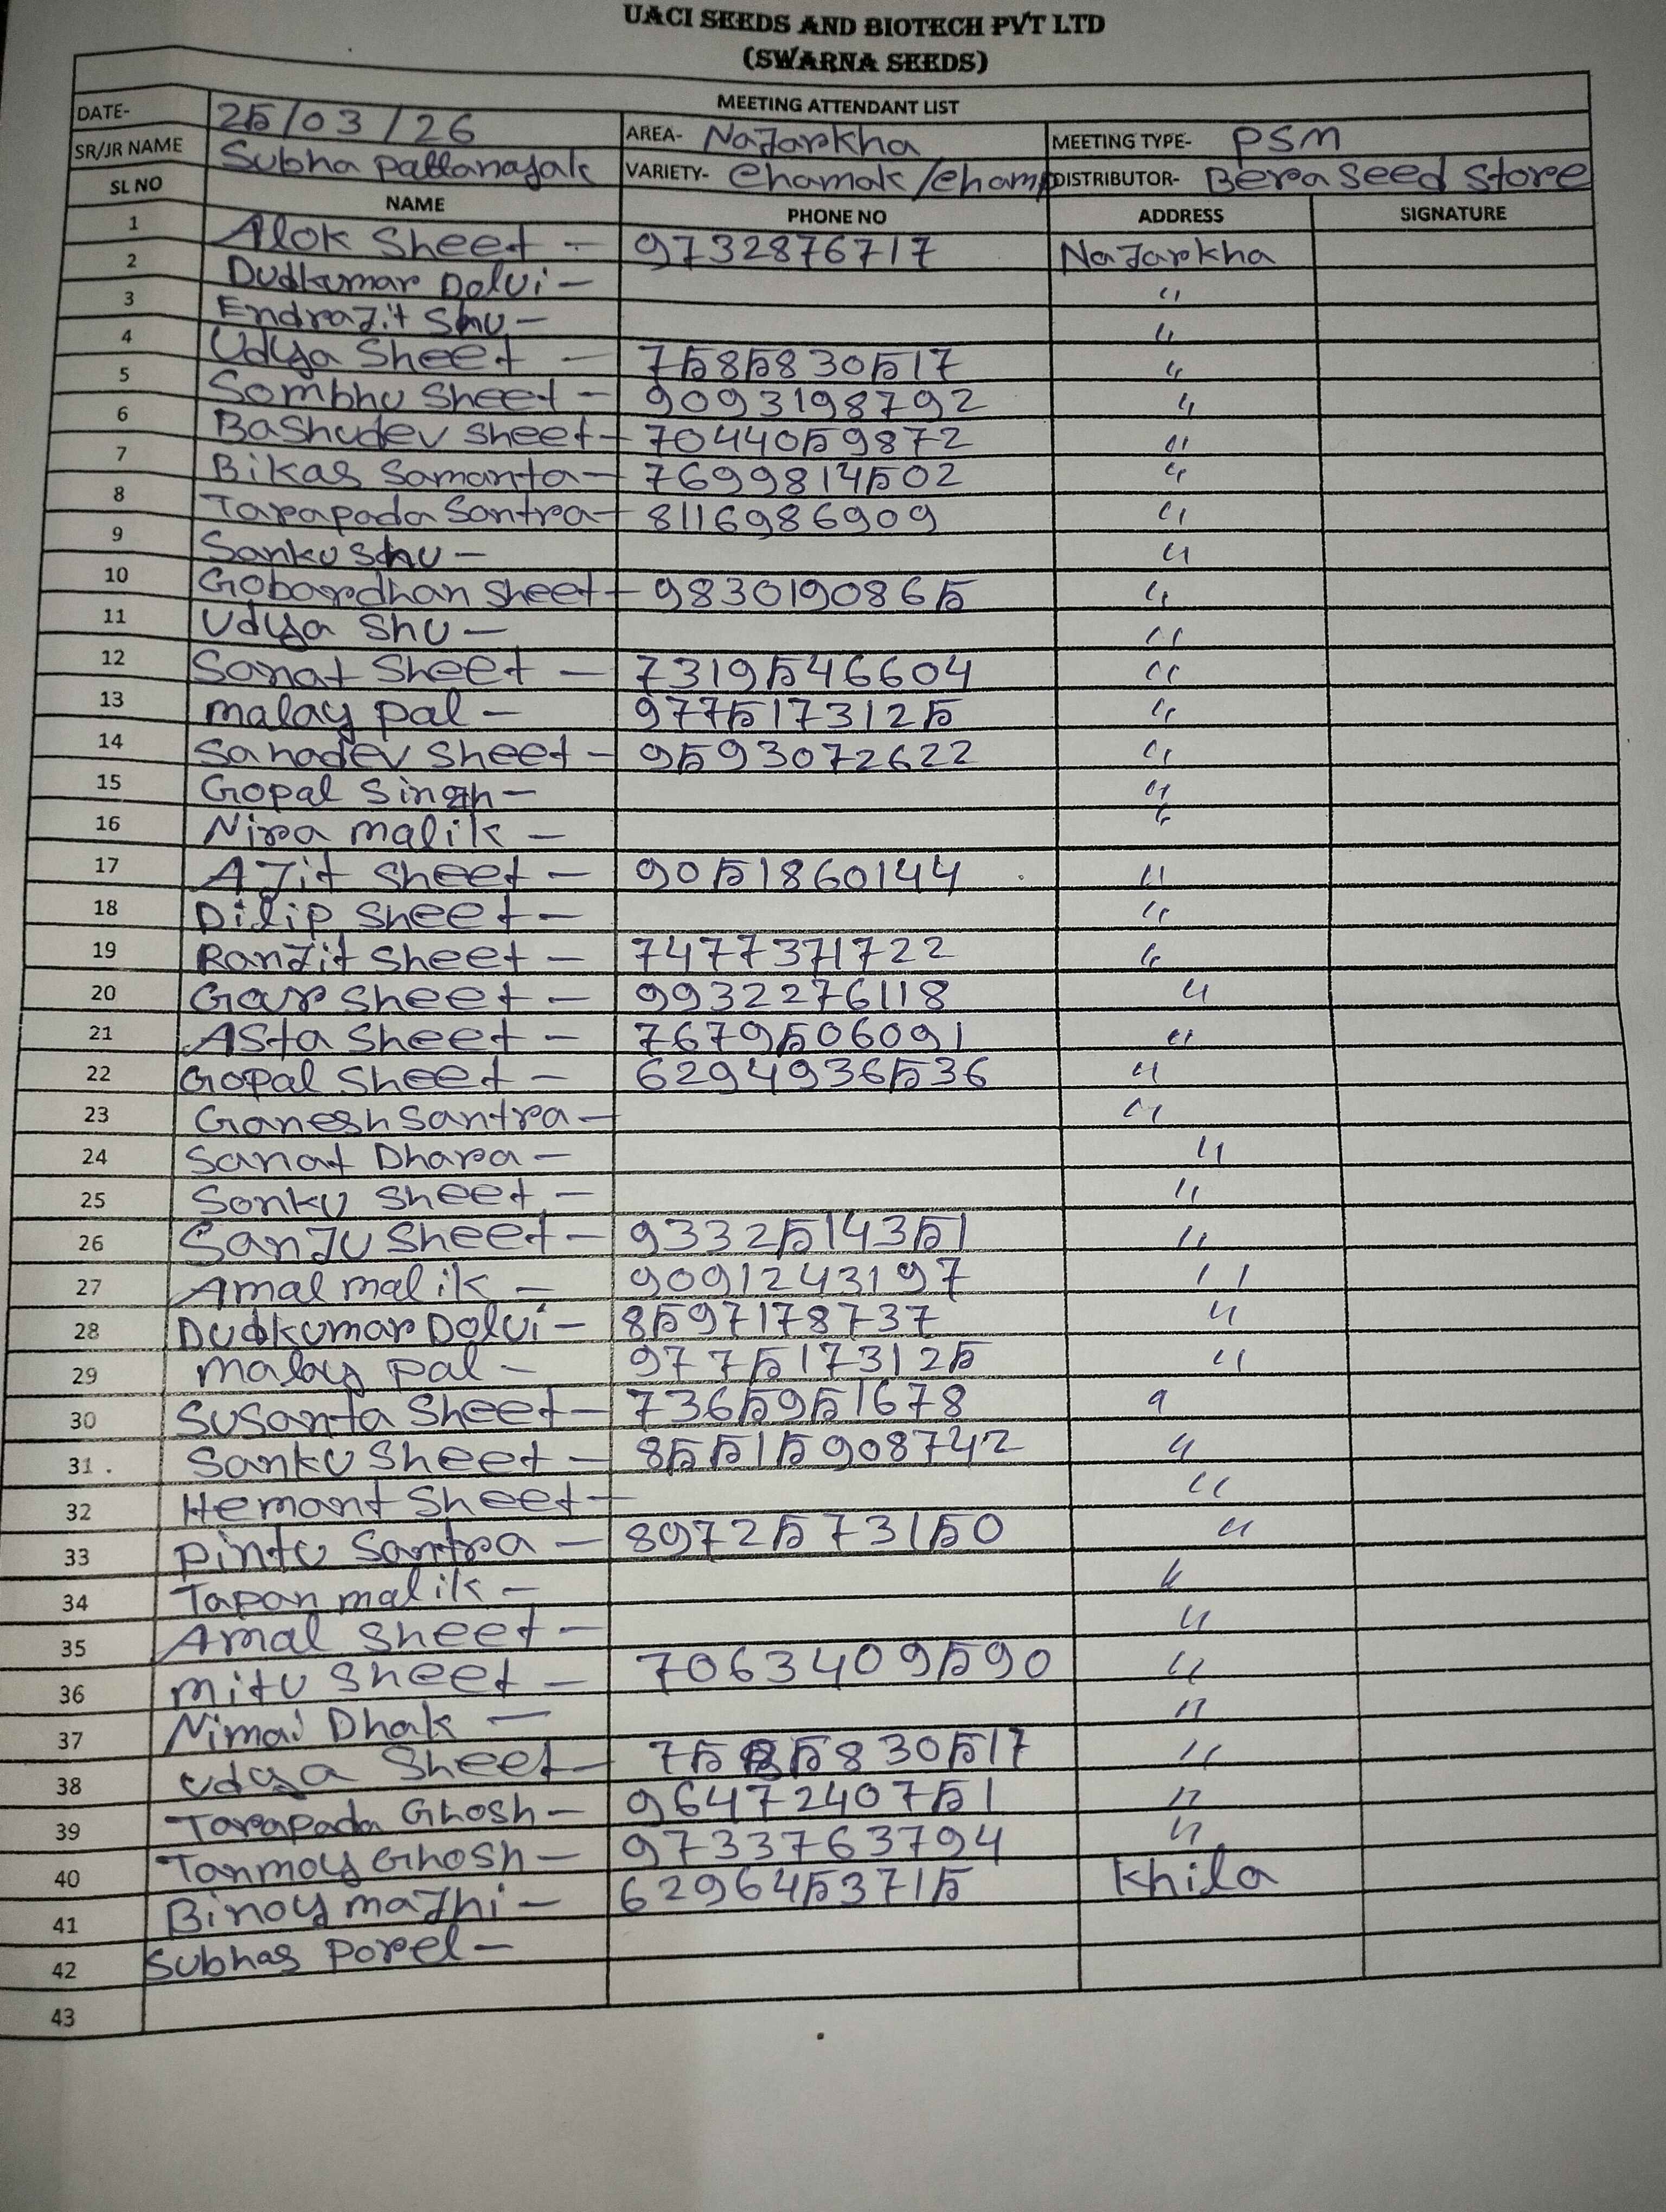 UACI SEEDS AND BIOTECH PVT LTD
(SWARNA SEEDS)
MEETING ATTENDANT LIST
DATE- 25/03/26 AREA- NaJarkha MEETING TYPE- PSM
SR/JR NAME Subha Pattanayak VARIETY- Chamak/Champ DISTRIBUTOR- Bera Seed Store
SL NO NAME PHONE NO ADDRESS SIGNATURE
1 Alok Sheet - 9732876717 NaJarkha
2 Dudkumar Dolui - "
3 EndraJit Shu - "
4 Udya Sheet - 7585830517 "
5 Sombhu Sheet - 9093198792 "
6 Bashudev Sheet - 7044059872 "
7 Bikas Samanta - 7699814502 "
8 Tarapada Santra - 8116986909 "
9 Sanku Shu - "
10 Gobardhan Sheet - 9830190865 "
11 Udya Shu - "
12 Sanat Sheet - 7319546604 "
13 Malay Pal - 9775173125 "
14 Sahadev Sheet - 9593072622 "
15 Gopal Singh - "
16 Nira Malik - "
17 AJit Sheet - 9051860144 "
18 Dilip Sheet - "
19 RanJit Sheet - 7477371722 "
20 Gar Sheet - 9932276118 "
21 Asta Sheet - 7679506091 "
22 Gopal Sheet - 6294936536 "
23 Ganesh Santra - "
24 Sanat Dhara - "
25 Sonku Sheet - "
26 SanJu Sheet - 9332514351 "
27 Amal Malik - 9091243197 "
28 Dudkumar Dolui - 8597178737 "
29 Malay Pal - 9775173125 "
30 Susanta Sheet - 7365951678 "
31. Sanku Sheet - 85515908742 "
32 Hemant Sheet - "
33 Pintu Santra - 8972573150 "
34 Tapan Malik - "
35 Amal Sheet - "
36 Mitu Sheet - 7063409590 "
37 Nimai Dhak - "
38 Udya Sheet - 7585830517 "
39 Tarapada Ghosh - 9647240751 "
40 Tanmoy Ghosh - 9733763794 "
41 Binoy MaJhi - 6296453715 Khila
42 Subhas Porel -
43